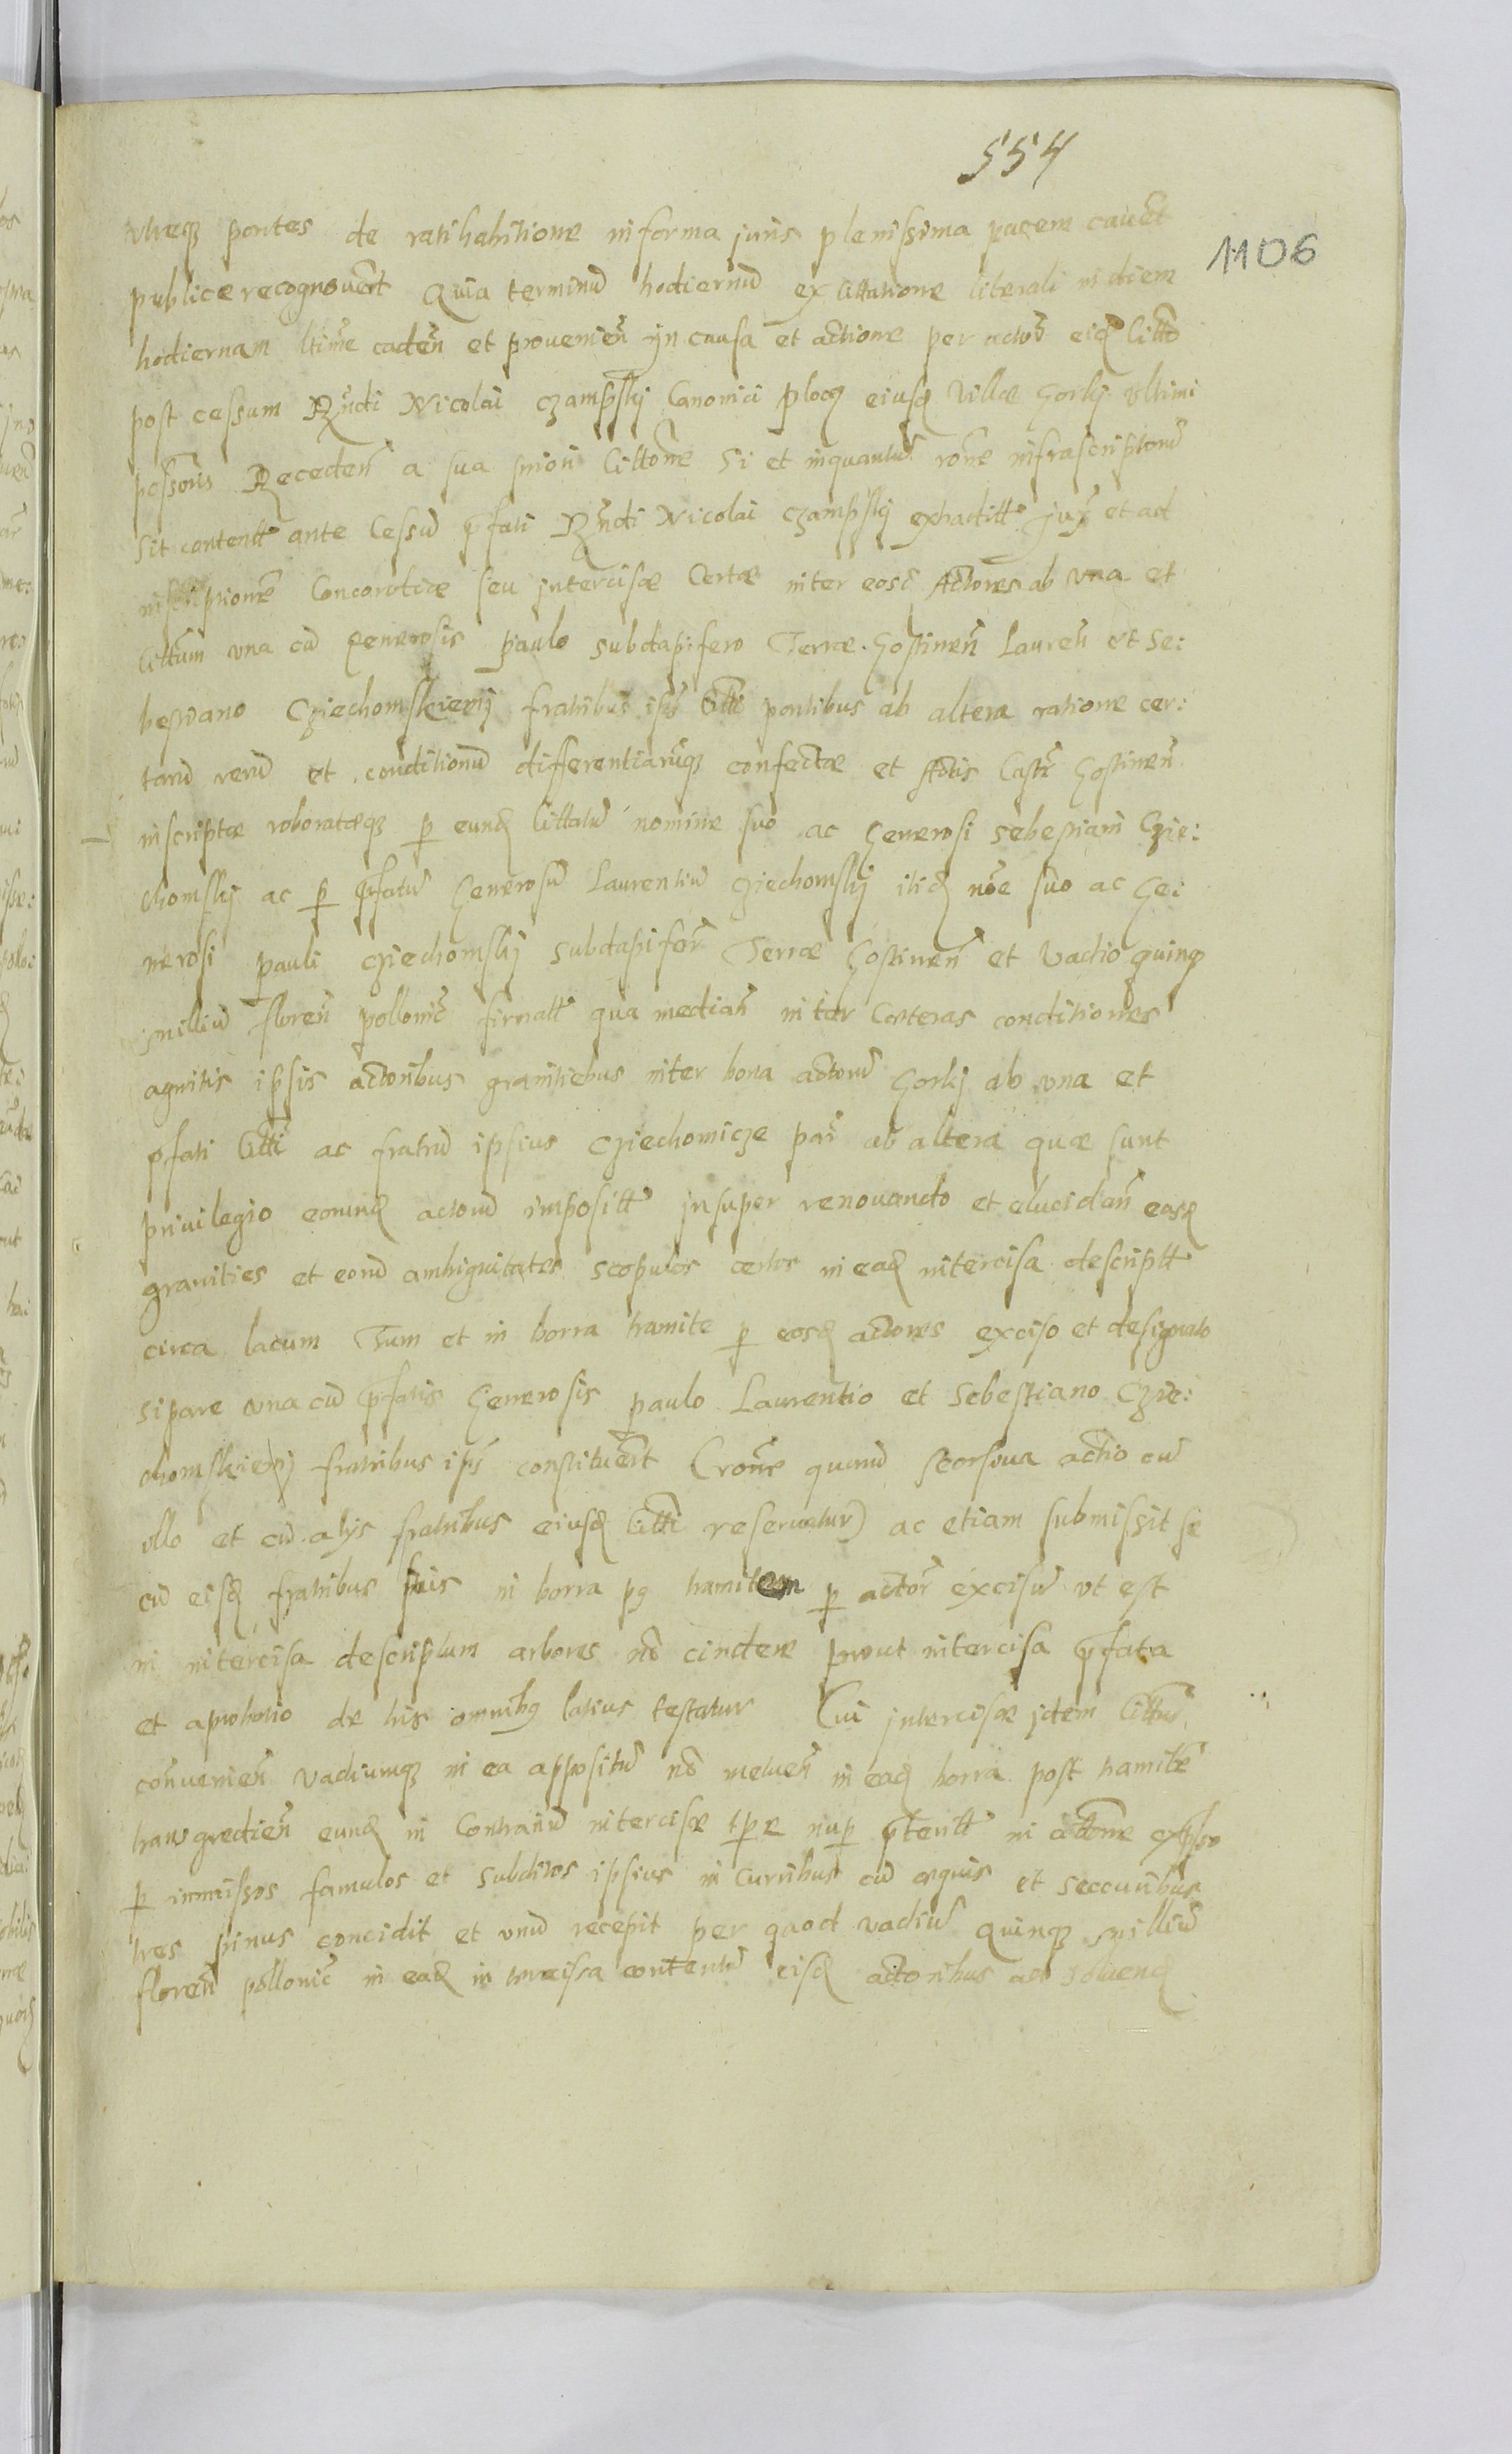 554
1106
utraqȝ partes de ratihabitione in forma juris plenissima pacem caueñt
publice recognoueřt Quia terminū hodiernū ex Cittatione literali in diem
hodiernam ltime cadeñ et proueniēn in causa et actione per actoř eidȝ Citto
post cessum Rñdi Nicolai Czampskij Canonici ploceñ eiusdȝ Villæ Gorkj vltimi
possoris Recedeñ a sua priori Cittoñe Si et inquantū roñe infrascriptorū
sit contentť ante Cessū pfati Rñdi Nicolai Czampskij extraditť juxȝ et ad
inscriptioneȝ Concordiæ seu intercisæ Certæ inter eosdȝ Actores ab vna et
Cittum vna cū Generosis paulo subdapifero Terræ Gostineñ Laureñ et Se:
bestiano Cziechomskiemj fratribus ips Citti partibus ab altera ratione cer:
tarū rerū et conditionū differentiarūqȝ confectæ et Actis Castř Gostineñ
inscriptæ roboratæqȝ p eundȝ Cittatū nomine suo ac Generosi Sebestiani Czie:
chomskij ac p pfatū Generosū Laurentiū Cziechomskij itidȝ noe suo ac Ge:
nerosi pauli Cziechomskij subdapiferi Terræ Gostineñ et Vadio quinqȝ
milliū floreñ polloniċ firmatť qua medianť inter Cæteras conditiones
agnitis ipsis actoribus granitiebus inter bona actorū Gorkj ab vna et
pfati Citti ac fratrū ipsius Cziechomicze pař ab altera quæ sunt
priuilegio eorundȝ actorū impositť insuper renouando et elucidañ easdȝ
granities et eorū ambiguitates scopulos certos in eadȝ intercisa descriptť
circa lacum Tum et in borra tramite p eosdȝ actores exciso et designato
sipare vna cū pfatis Generosis paulo Laurentio et Sebestiano Czie:
chomskiemj fratribus ips constitueřt (roñe quarū seorsiua actio cū
illo et cū alijs fratribus eiusdȝ Citti reseruatur) ac etiam submissit se
cū eisdȝ fratribus suis in borra pȝ tramitem p actoř excisū vt est
in intercisa descriptum arbores nō cindere prout intercisa pfata
et aprobatio de his omnibȝ latius testatur Cui intercisæ idem Cittus
conuenieñ vadiumqȝ in ea appositū nō metueñ in eadȝ borra post tramitē
transgredieñ eundȝ in Contrariū intercisæ tpe nup ptentť in actione expsso
p immissos famulos et subditos ipsius in curribus cū æquis et seccuribus
tres pinus concidit et vnū recepit per quod vadiū quinqȝ milliū
floreñ polloniċ in eadȝ intercisa contentū eisdȝ actoribus ad soluendȝ